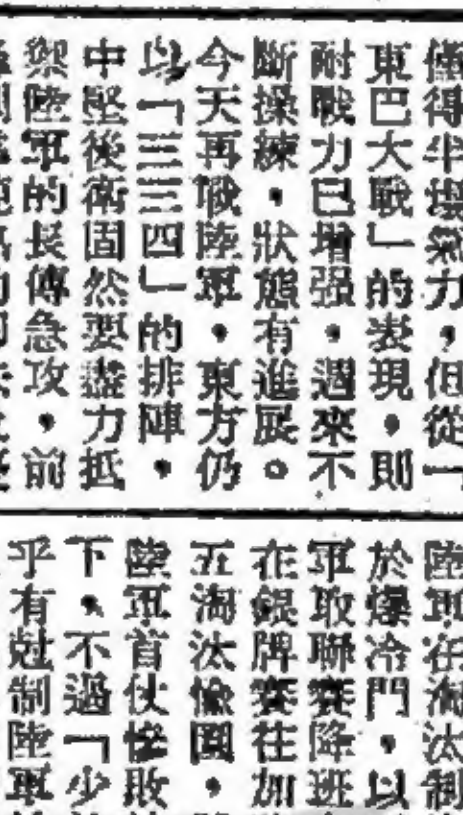 僅得半場氣力，但從「
東巴大戰」的表現，則
耐戰力已增强，週來不
斷操練，狀態有進展。
今天再戰陸軍，東方仍
以「三三四」的排陣，
中堅後衛固然要盡力抵
禦陸軍的長傳急攻，前
陸軍在淘汰制
於爆冷門，以
軍取聯賽降班
在銀牌賽往加
五淘汰愉園，
陸軍首仗慘敗
下，不過「少
乎有尅制陸軍